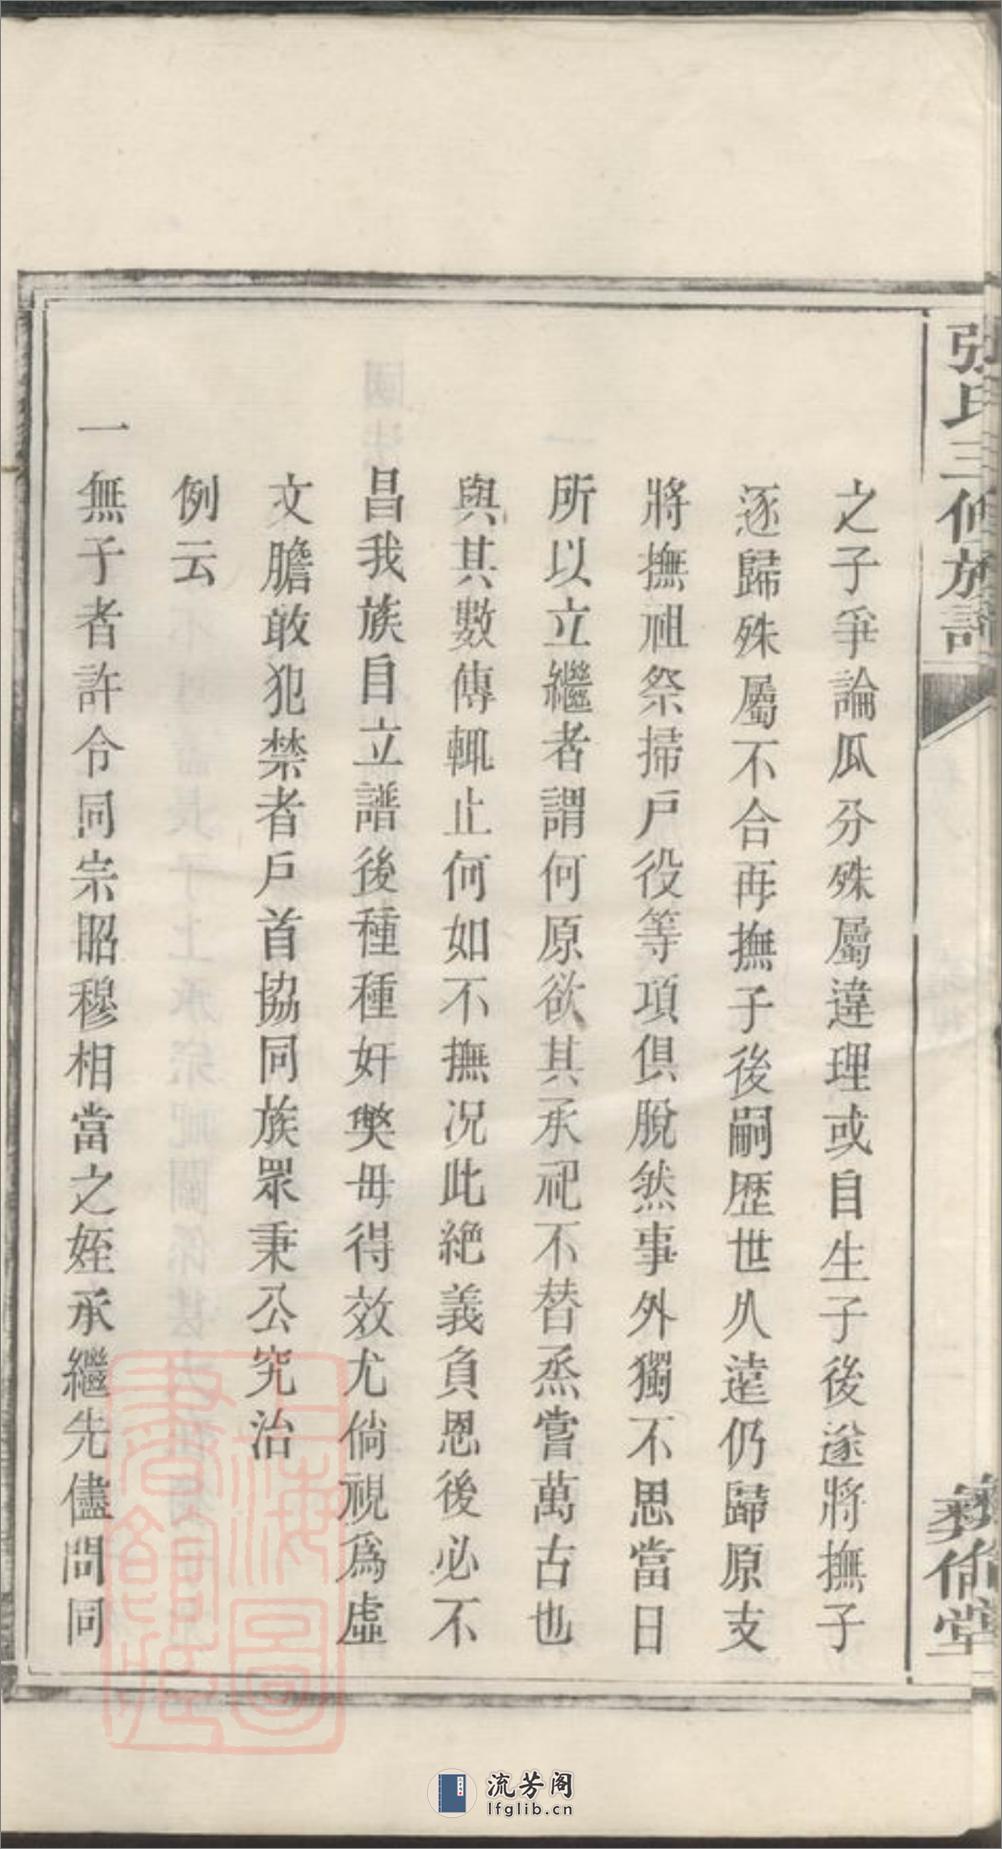 張氏三修族譜
彝倫堂
之子爭論瓜分殊屬違理或自生子後遂將撫子
逐歸殊屬不合再撫子後嗣歷世久遠仍歸原支
將撫祖祭掃戶役等項俱脫然事外獨不思當日
所以立繼者謂何原欲其承祀不替烝嘗萬古也
與其數傳輒止何如不撫况此絕義負恩後必不
昌我族自立譜後種種奸獘毋得效尤倘視為虛
文膽敢犯禁者戶首協同族眾秉公究治
例云
一無子者許令同宗昭穆相當之姪承繼先儘問同
上海圖書館藏
流芳阁
lfglib.cn